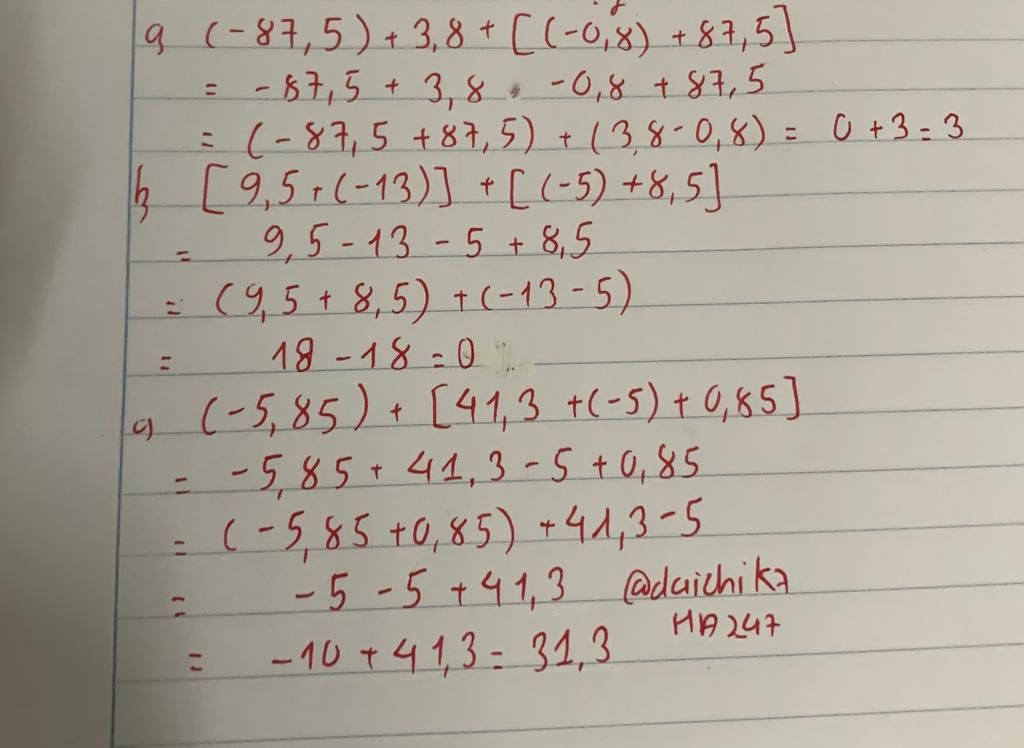 a) (-87,5) + 3,8 + [(-0,8) + 87,5]
= -87,5 + 3,8 - 0,8 + 87,5
= (-87,5 + 87,5) + (3,8 - 0,8) = 0 + 3 = 3
b) [9,5 + (-13)] + [(-5) + 8,5]
= 9,5 - 13 - 5 + 8,5
= (9,5 + 8,5) + (-13 - 5)
= 18 - 18 = 0
c) (-5,85) + [41,3 + (-5) + 0,85]
= -5,85 + 41,3 - 5 + 0,85
= (-5,85 + 0,85) + 41,3 - 5
= -5 - 5 + 41,3 @daichika
HA247
= -10 + 41,3 = 31,3